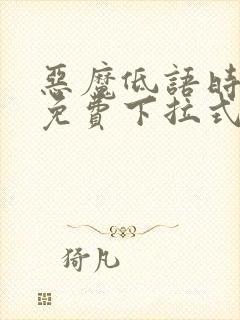 惡魔低語時
免費下拉式
猗凡